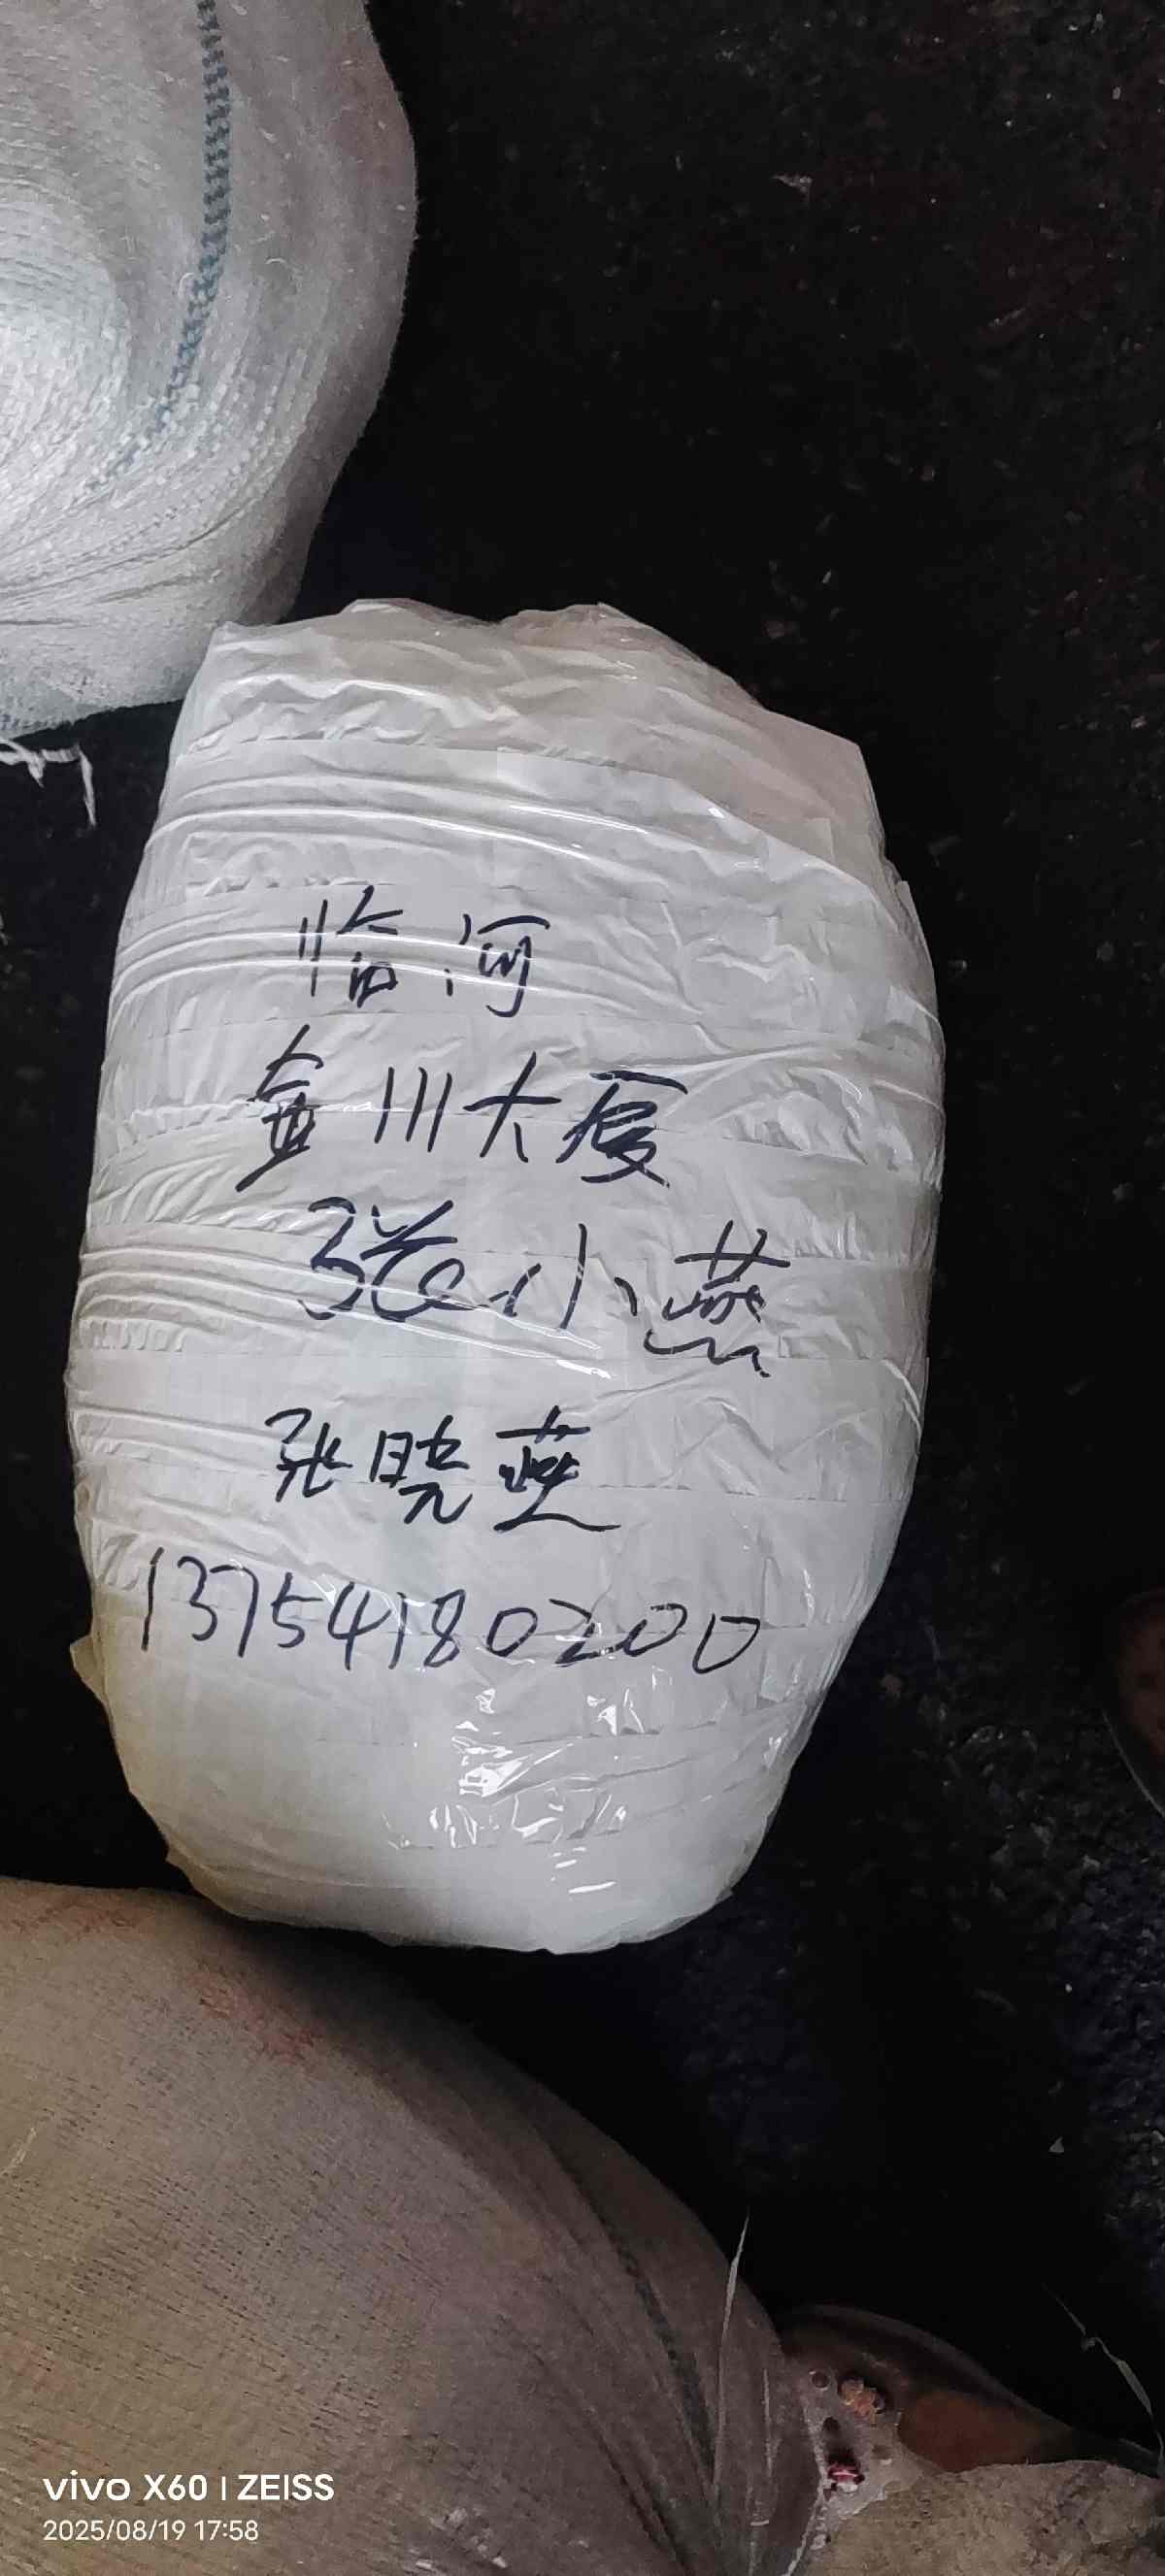 临河
金川大厦
张小燕
张晓燕
13754180200
vivo X60 | ZEISS
2025/08/19 17:58